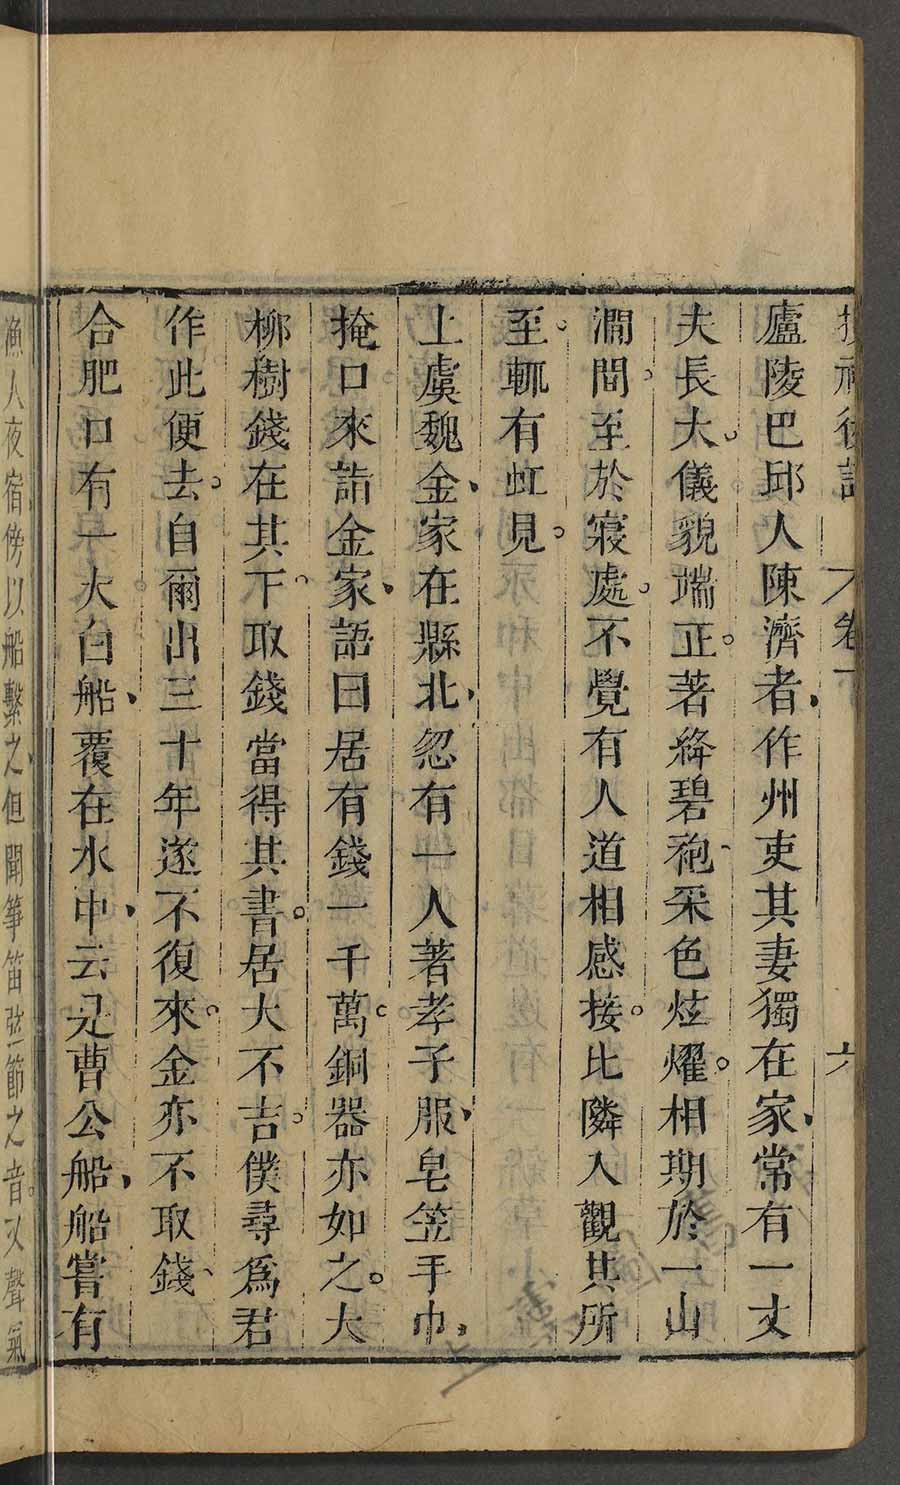 搜神後記 卷下 六
廬陵巴邱人陳濟者、作州吏其妻獨在家、常有一丈
夫長大。儀貌端正。著絳碧袍、采色炫燿。相期於一山
澗間。至於寢處。不覺有人道相感接。比隣人觀其所
至。輒有虹見。
上虞魏金、家在縣北、忽有一人著孝子服、皂笠手巾、
掩口來詣金家、語曰居有錢一千萬。銅器亦如之。大
柳樹錢在其下。取錢當得其書。居大不吉。僕尋爲君
作此便去。自爾出三十年遂不復來。金亦不取錢、
合肥口有一大白船、覆在水中、云是曹公船、船嘗有
漁人夜宿傍以船繫之、但聞箏笛弦節之音。又聲氣